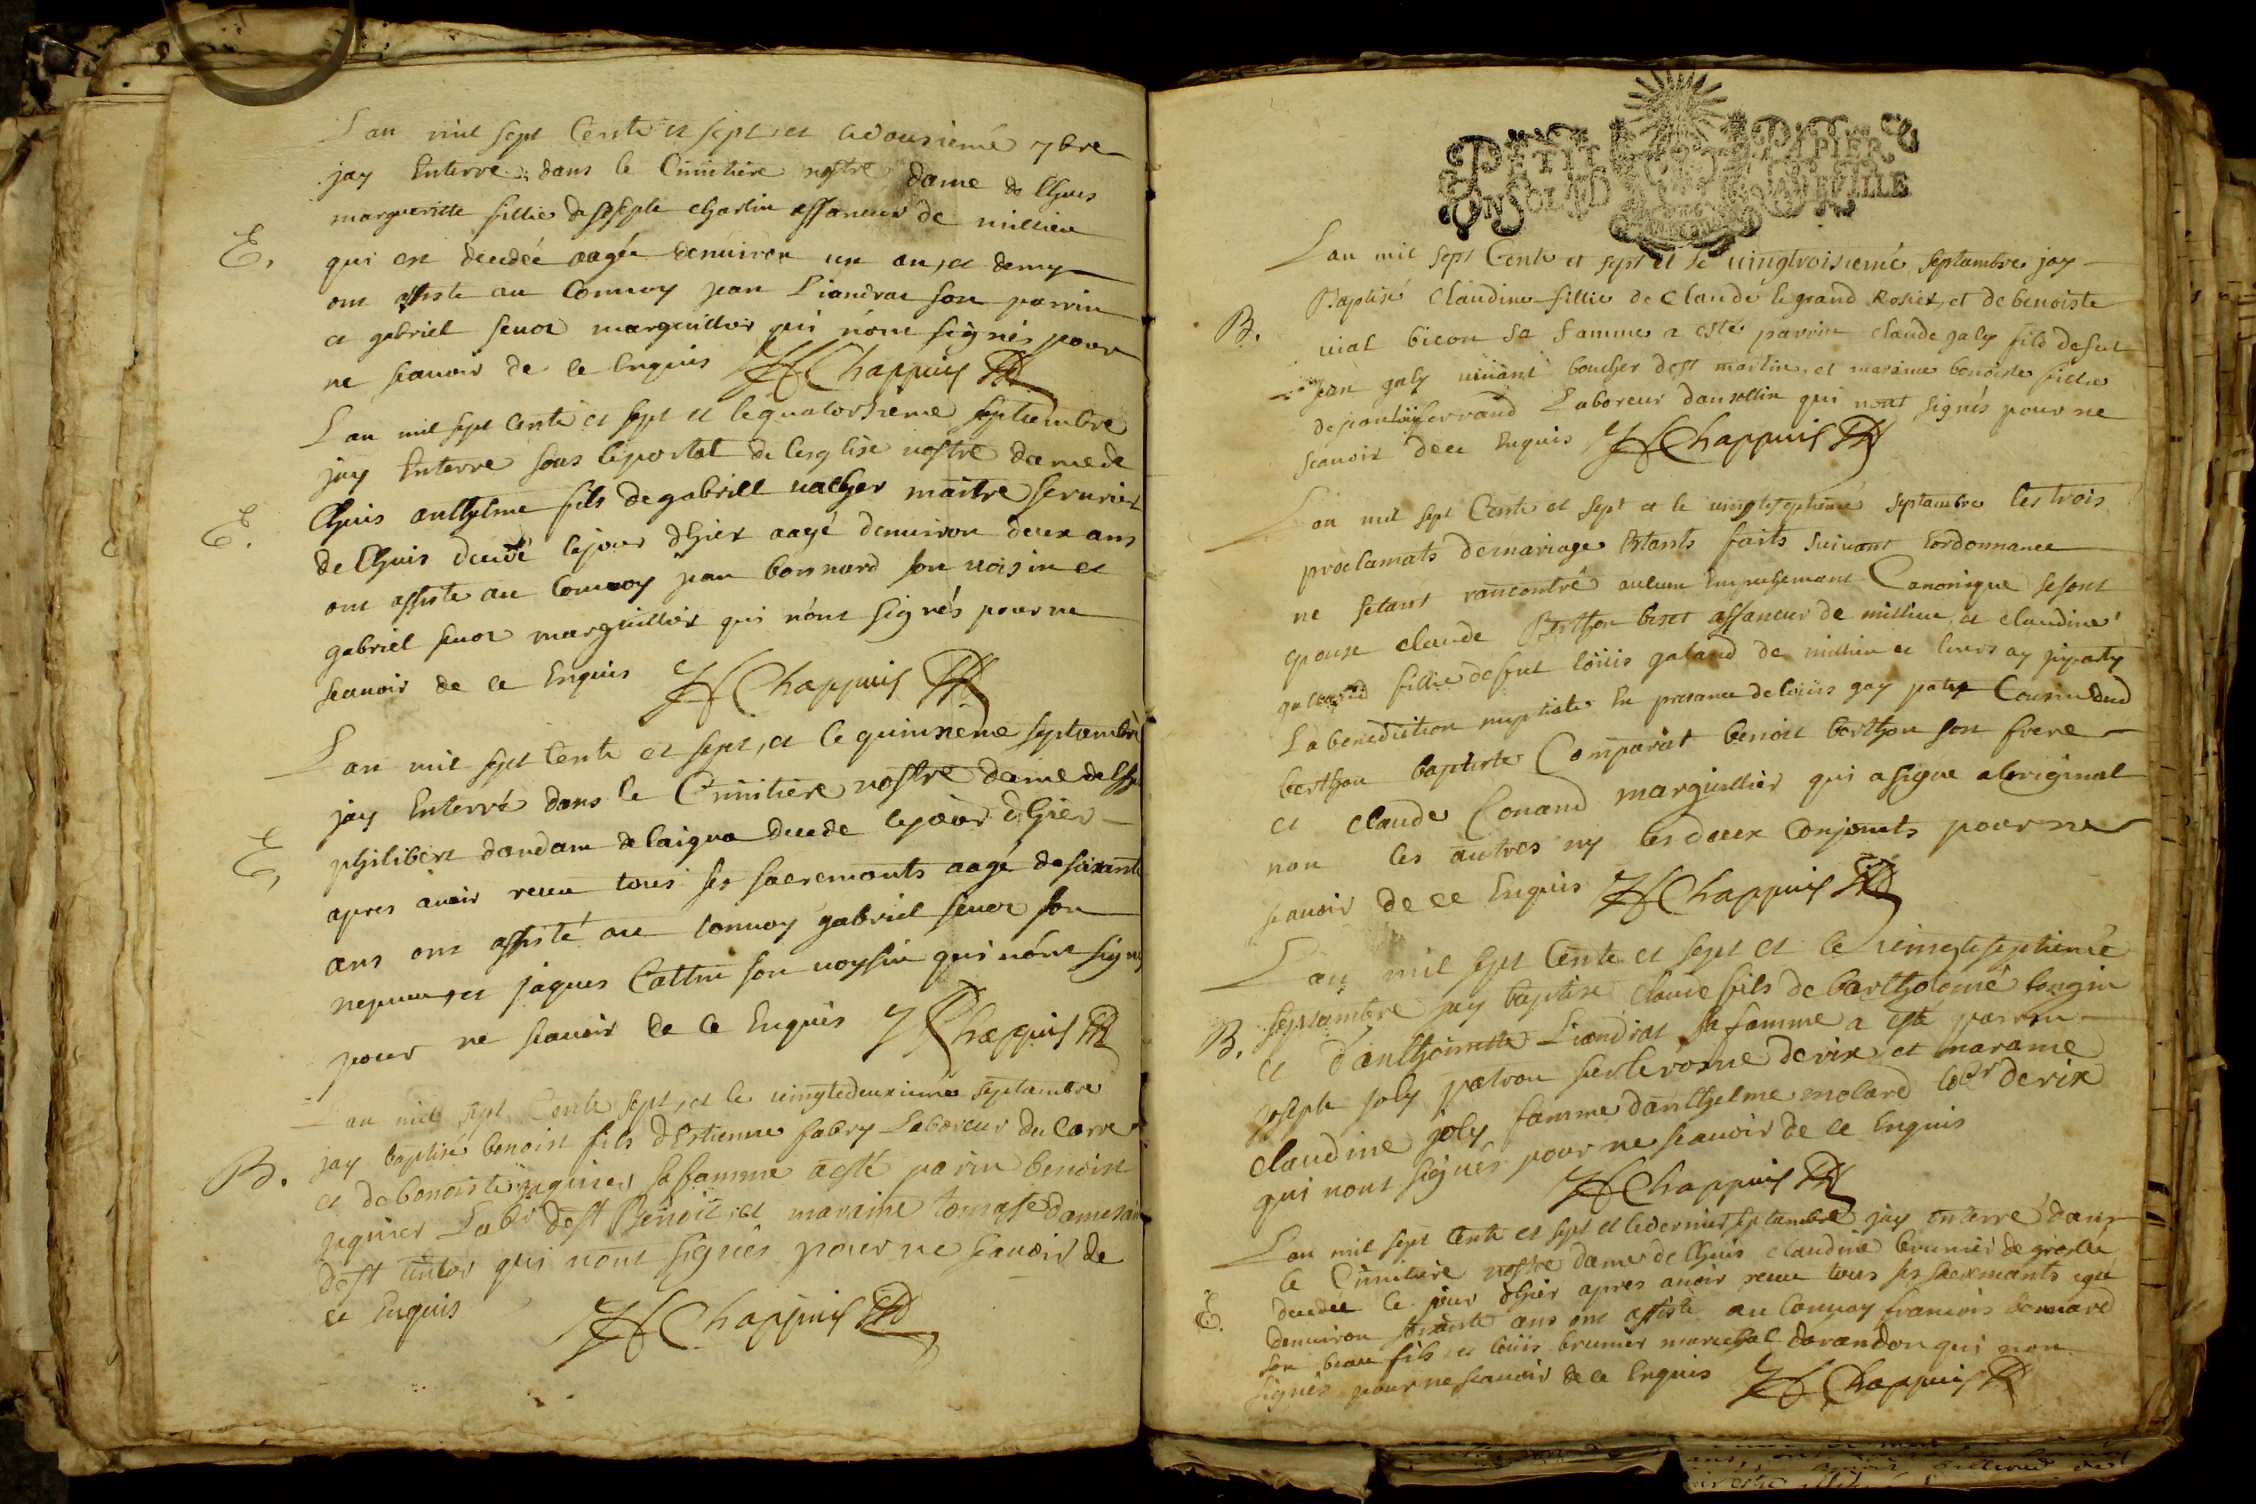 L an mil sept Cents et sept et le dousiemé 7bre
jay Enterré dans le Cimitiere nostre dame de Lhuis
margueritte fillie de joseph charlin affaneur de millieu
E.
qui est decedée aagée denuiron un an, et demy
ont assiste au Conuoy jean Liandrat son parrin
et gabriel seuoz marguillier qui nónt signés pour
ne scauoir de ce Enquis Chappuis
L an mil sept Cents et sept et le quatorsieme septembre
jay Enterré sous le portal de lesglise nostre dame de
Lhuis anthelme fils de gabriell uacher maitre serurier
E.
de Lhuis decedé le jour dhier aagé denuiron deux ans
ont assiste au Conuoy jean bonnard son uoisin et
gabriel seuoz marguillier qui nónt signés pour ne
scauoir de ce Enquis Chappuis
L an mil sept Cents et sept, et le quinsieme septambre
jay Enterré dans le Cimitiere nostre dame de Lhuis
E,
philibert dandam de laigna decede le jour dhier
apres auoir receu tous ses sacremants aagé de soixante
ans ont assisté au Conuoy gabriel seuoz son
nepueu, et jaques Cattin son uoysin qui nónt signés
pour ne scauoir de ce Enquis Chappuis
L an mil sept Cents sept, et le uingtedeuxieme septambre
B.
jay baptisé benoist fils dEstienne fabry Laboreur du Carre
et de benoiste juguiner sa famme a esté parin benoist
juguier Labr de St Benoit, et maraine tomasse dame
de St qui nont signés pour ne scauoir de
ce Enquis Chappuis
PETIT PAPIER
UN SOL LA FEUILLE
L an mil sept Cents et sept et le uingtroisieme septambre jay
B.
Baptisé Claudine fillie de Claude le grand Rosier, et de benoiste
uial bicon sa famme a esté parrin claude galy fils de fut
jean galy uiuant boucher de St martin, et maraine benoiste fillie
de jean louis ferrand Laboreur dansollin qui nont signés pour ne
scauoir de ce Enquis Chappuis
L an mil sept Cents et sept et le uingteseptiemé septambre les trois
proclamats de mariage Estants faits suiuant Lordonnance
ne setant rancontré aucun Empeschemant Canonique se sont
epouse claude Berthon biset affaneur de millieu, et claudine
galland fillie de fut loüis galand de millieu et leurs ay jmparty
La benediction nuptiale En presance de loüis gay Cousin dud
berthon baptiste Comparat benoit berthon son frere
et claude Conand marguillier qui a signe a loriginal
non les autres ny les deux Conjoints pour ne
scauoir de ce Enquis Chappuis
L an mil sept Cents et sept et le uingteseptiemé
B.
septambre jay baptise claude fils de bartholomé longin
et danthoinette Liandrat sa famme a esté parrin
joseph joly patron sur le rosne de rix et maraine
claudine joly famme danthelme molard labr de rix
qui nont signés pour ne scauoir de ce Enquis
Chappuis
L an mil sept Cents et sept et le dernier septambre jay enterré dans
le Cimitiere nostre dame de Lhuis claudine brunier de groslée
E.
decedée le jour dhier apres auoir receu tous ses sacremants agé
denuiron soixante ans ont assiste au Conuoy francois bonnard
son beau fils et loüis brunier marechal darandon qui non
signés pour ne scauoir de ce Enquis Chappuis